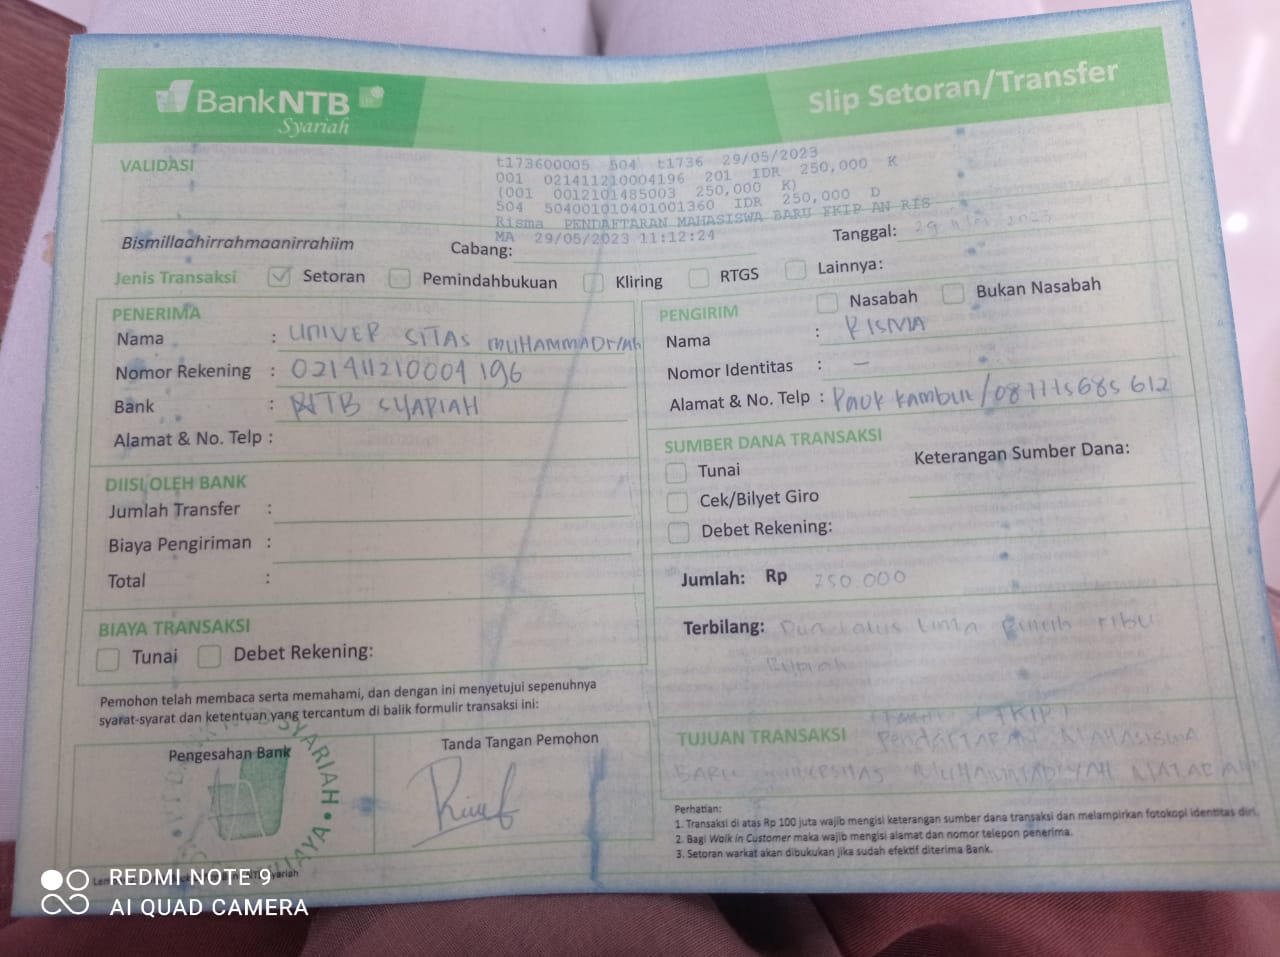 BankNTB
Syariah
Slip Setoran/Transfer
VALIDASI
t173600005 504 t1736 29/05/2023
001 021411210004196 201 IDR 250,000 K
(001 0012101485003 250,000 K)
504 504001010401001360 IDR 250,000 D
Risma PENDAFTARAN MAHASISWA BARU FKIP AN RIS
MA 29/05/2023 11:12:24
Bismillaahirrahmaanirrahiim
Cabang:
Tanggal: 29 Mei 2023
Jenis Transaksi Setoran Pemindahbukuan Kliring RTGS Lainnya:
PENERIMA
Nama : UNIVERSITAS MUHAMMADIYAH
Nomor Rekening : 021411210004196
Bank : NTB SYARIAH
Alamat & No. Telp :
DIISI OLEH BANK
Jumlah Transfer :
Biaya Pengiriman :
Total :
BIAYA TRANSAKSI
Tunai Debet Rekening:
Pemohon telah membaca serta memahami, dan dengan ini menyetujui sepenuhnya
syarat-syarat dan ketentuan yang tercantum di balik formulir transaksi ini:
Pengesahan Bank
Tanda Tangan Pemohon
PENGIRIM Nasabah Bukan Nasabah
Nama : RISMA
Nomor Identitas : –
Alamat & No. Telp : Paok kambut/087115685612
SUMBER DANA TRANSAKSI
Tunai
Keterangan Sumber Dana:
Cek/Bilyet Giro
Debet Rekening:
Jumlah: Rp 250.000
Terbilang: Dua ratus lima puluh ribu
Rupiah
(FKIP)
TUJUAN TRANSAKSI PENDAFTARAN MAHASISWA
BARU UNIVERSITAS MUHAMMADIYAH MATARAM
Perhatian:
1. Transaksi di atas Rp 100 juta wajib mengisi keterangan sumber dana transaksi dan melampirkan fotokopi identitas diri.
2. Bagi Walk in Customer maka wajib mengisi alamat dan nomor telepon penerima.
3. Setoran warkat akan dibukukan jika sudah efektif diterima Bank.
SYARIAH
REDMI NOTE 9
AI QUAD CAMERA